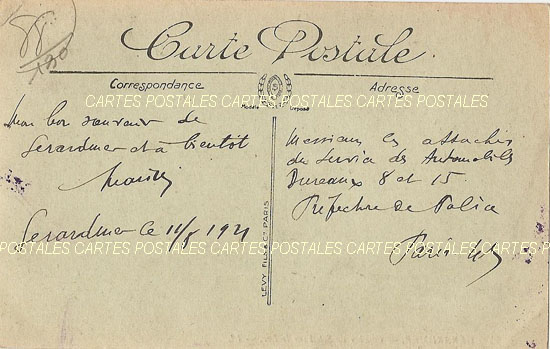 88
180
Carte Postale
Correspondance
Adresse
Modèle Déposé
CARTES POSTALES CARTES POSTALES CARTES POSTALES CARTES POSTALES
Mon bon souvenir de
Gerardmer et à bientôt
Gerardmer le 11/8 1921
LEVY FILS ET Cie PARIS
Messieurs les attachés
du Service des Automobiles
Bureaux 8 et 15
Préfecture de Police
Paris
CARTES POSTALES CARTES POSTALES CARTES POSTALES CARTES POSTALES